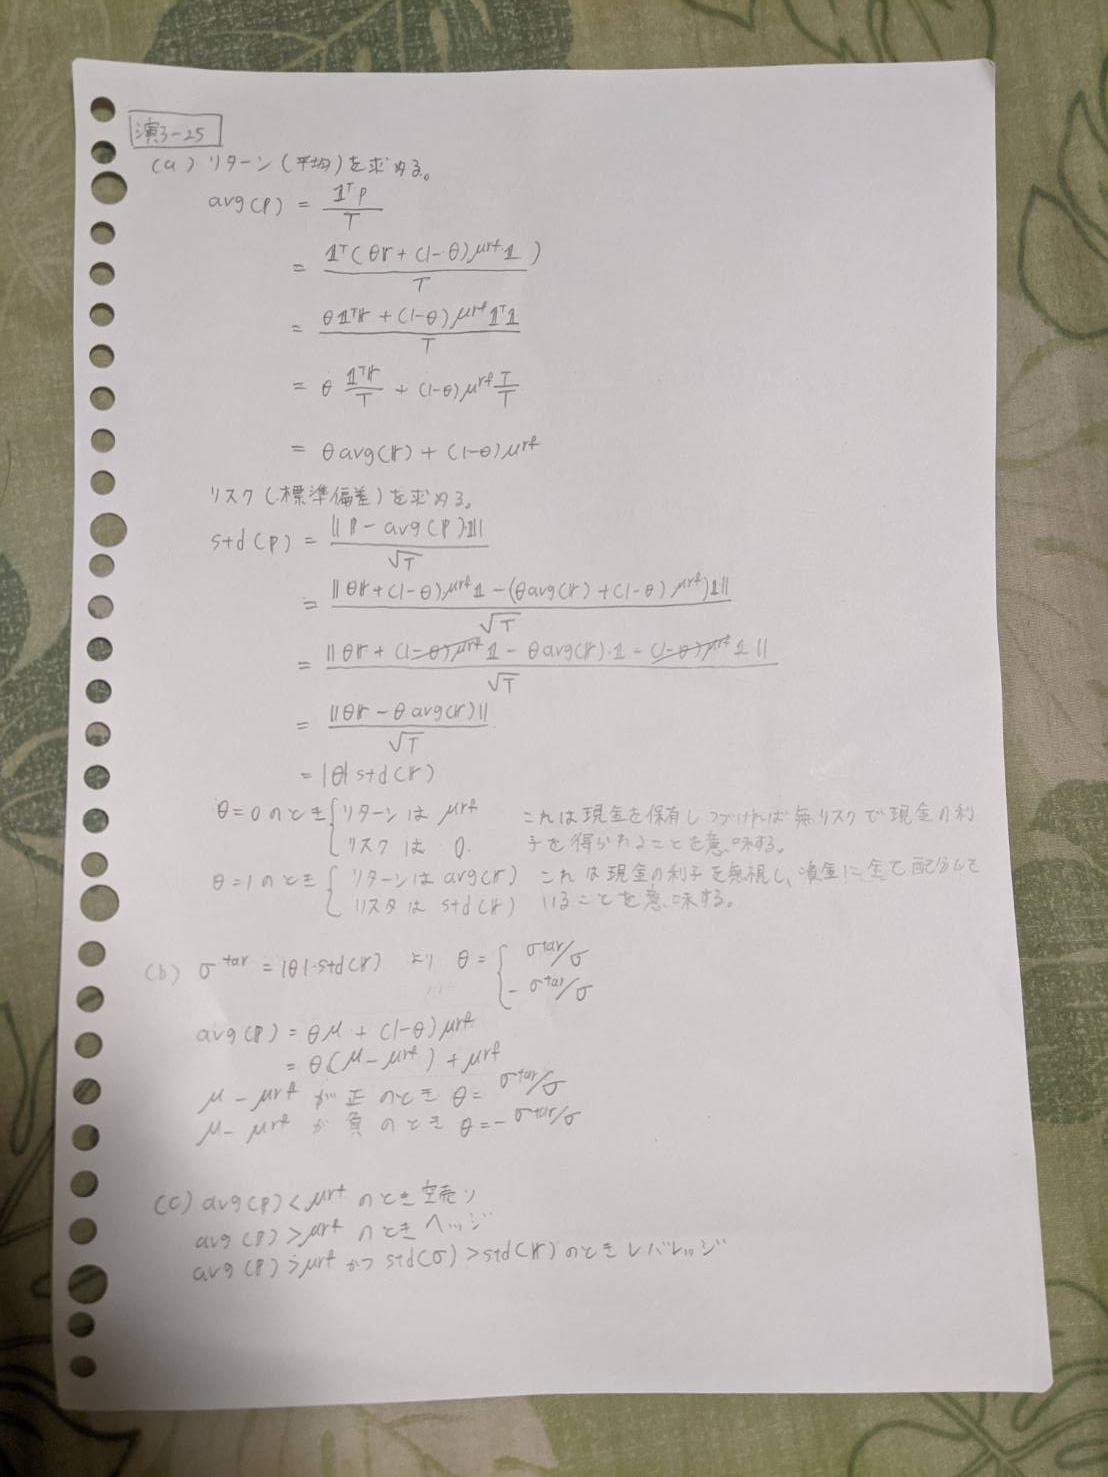 演3-25
(a) リターン(平均)を求める。
avg(p) = 1ᵀp / T
= 1ᵀ(θr + (1-θ)μʳᶠ・1) / T
= θ1ᵀr + (1-θ)μʳᶠ1ᵀ1 / T
= θ 1ᵀr/T + (1-θ)μʳᶠ T/T
= θavg(r) + (1-θ)μʳᶠ
リスク(標準偏差)を求める。
std(p) = ||p - avg(p)・1|| / √T
= ||θr + (1-θ)μʳᶠ1 - (θavg(r) + (1-θ)μʳᶠ)1|| / √T
= ||θr + (1-θ)μʳᶠ1 - θavg(r)・1 - (1-θ)μʳᶠ1|| / √T
= ||θr - θavg(r)|| / √T
= |θ|std(r)
θ=0のとき { リターンは μʳᶠ これは現金を保有しつづければ無リスクで現金の利
リスクは 0. 子を得られることを意味する。
θ=1のとき { リターンは avg(r) これは現金の利子を無視し、資金に全て配分して
リスクは std(r) いることを意味する。
(b) σᵗᵃʳ = |θ|・std(r) より θ = { σᵗᵃʳ/σ
- σᵗᵃʳ/σ
avg(p) = θμ + (1-θ)μʳᶠ
= θ(μ - μʳᶠ) + μʳᶠ
μ - μʳᶠ が正のとき θ = σᵗᵃʳ/σ
μ - μʳᶠ が負のとき θ = - σᵗᵃʳ/σ
(c) avg(p) < μʳᶠ のとき空売り
avg(p) > μʳᶠ のときヘッジ
avg(p) > μʳᶠ かつ std(σ) > std(r) のときレバレッジ